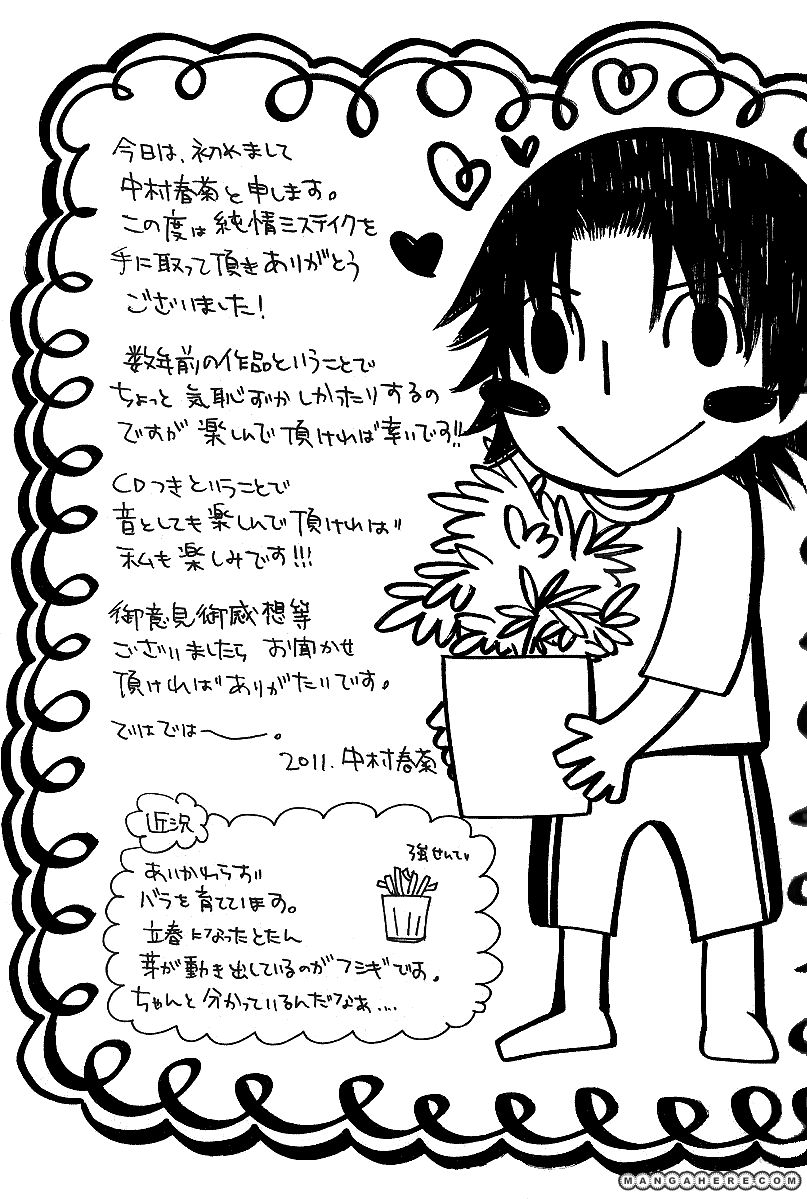 今日は、初めまして
中村春菊と申します。
この度は純情ミステイクを
手に取って頂きありがとう
ございました!
数年前の作品ということで
ちょっと気恥ずかしかったりするの
ですが楽しんで頂ければ幸いです!!
CDつきということで
音としても楽しんで頂ければ
私も楽しみです!!!
御意見御感想等
ございましたら お聞かせ
頂ければありがたいです。
ではでは――。
2011. 中村春菊
近況
あいかわらず
バラを育てています。
立春になったとたん
芽が動き出しているのがフシギです。
ちゃんと分かっているんだなぁ...
強せんてい
MANGAHERE.COM